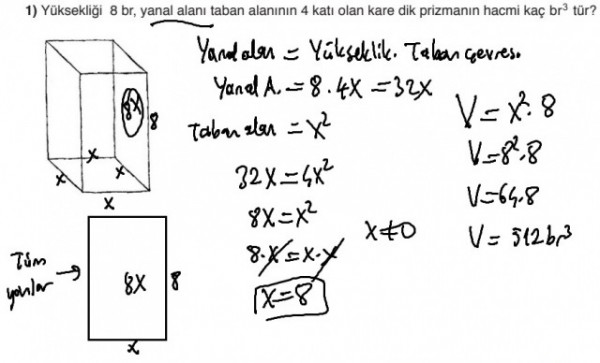 1) Yüksekliği 8 br, yanal alanı taban alanının 4 katı olan kare dik prizmanın hacmi kaç br³ tür?
Yanal alan = Yükseklik. Taban çevresi
Yanal A. = 8.4x = 32x
Taban alan = x²
32x = 4x²
8x = x²
8.x = x.x
x = 8
x ≠ 0
V = x².8
V = 8².8
V = 64.8
V = 512 br³
8x
8
x
x
x
x
Tüm
yanlar
8x
8
x